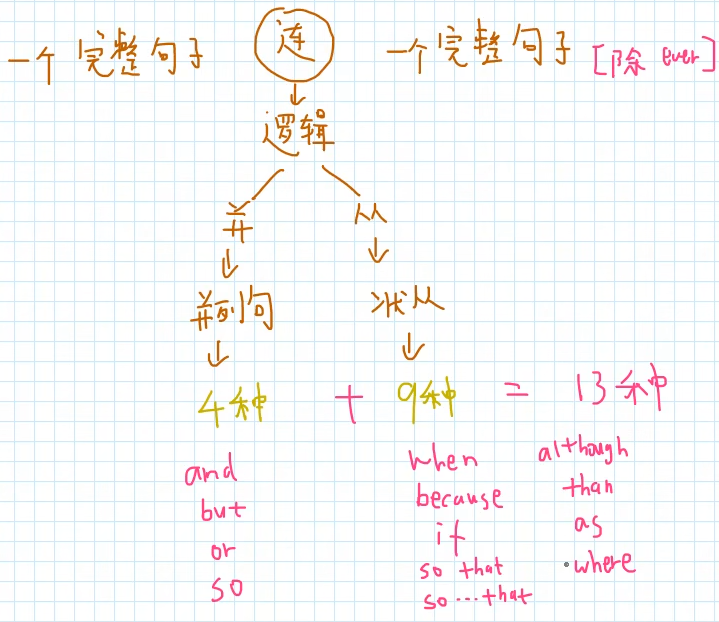 一个完整句子 连 一个完整句子 [除 ever]
逻辑
并 从
并列句 状从
4种 + 9种 = 13种
and
but
or
so
when
because
if
so that
so...that
although
than
as
where